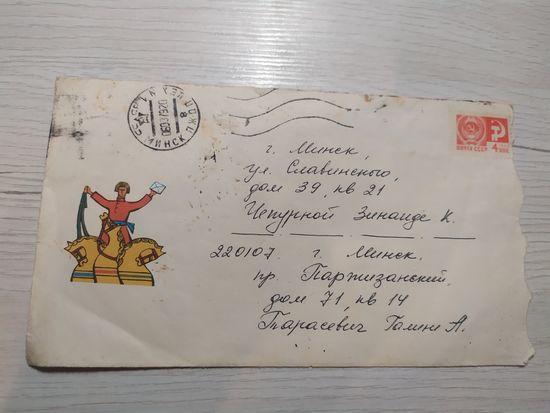 СССР
МИНСК
ПОЧТА СССР
4
г. Минск,
ул. Славинского,
дом 39, кв 21
Чепурной Зинаиде К.
220107. г. Минск.
пр. Партизанский.
дом 71, кв 14
Тарасевич Галине А.